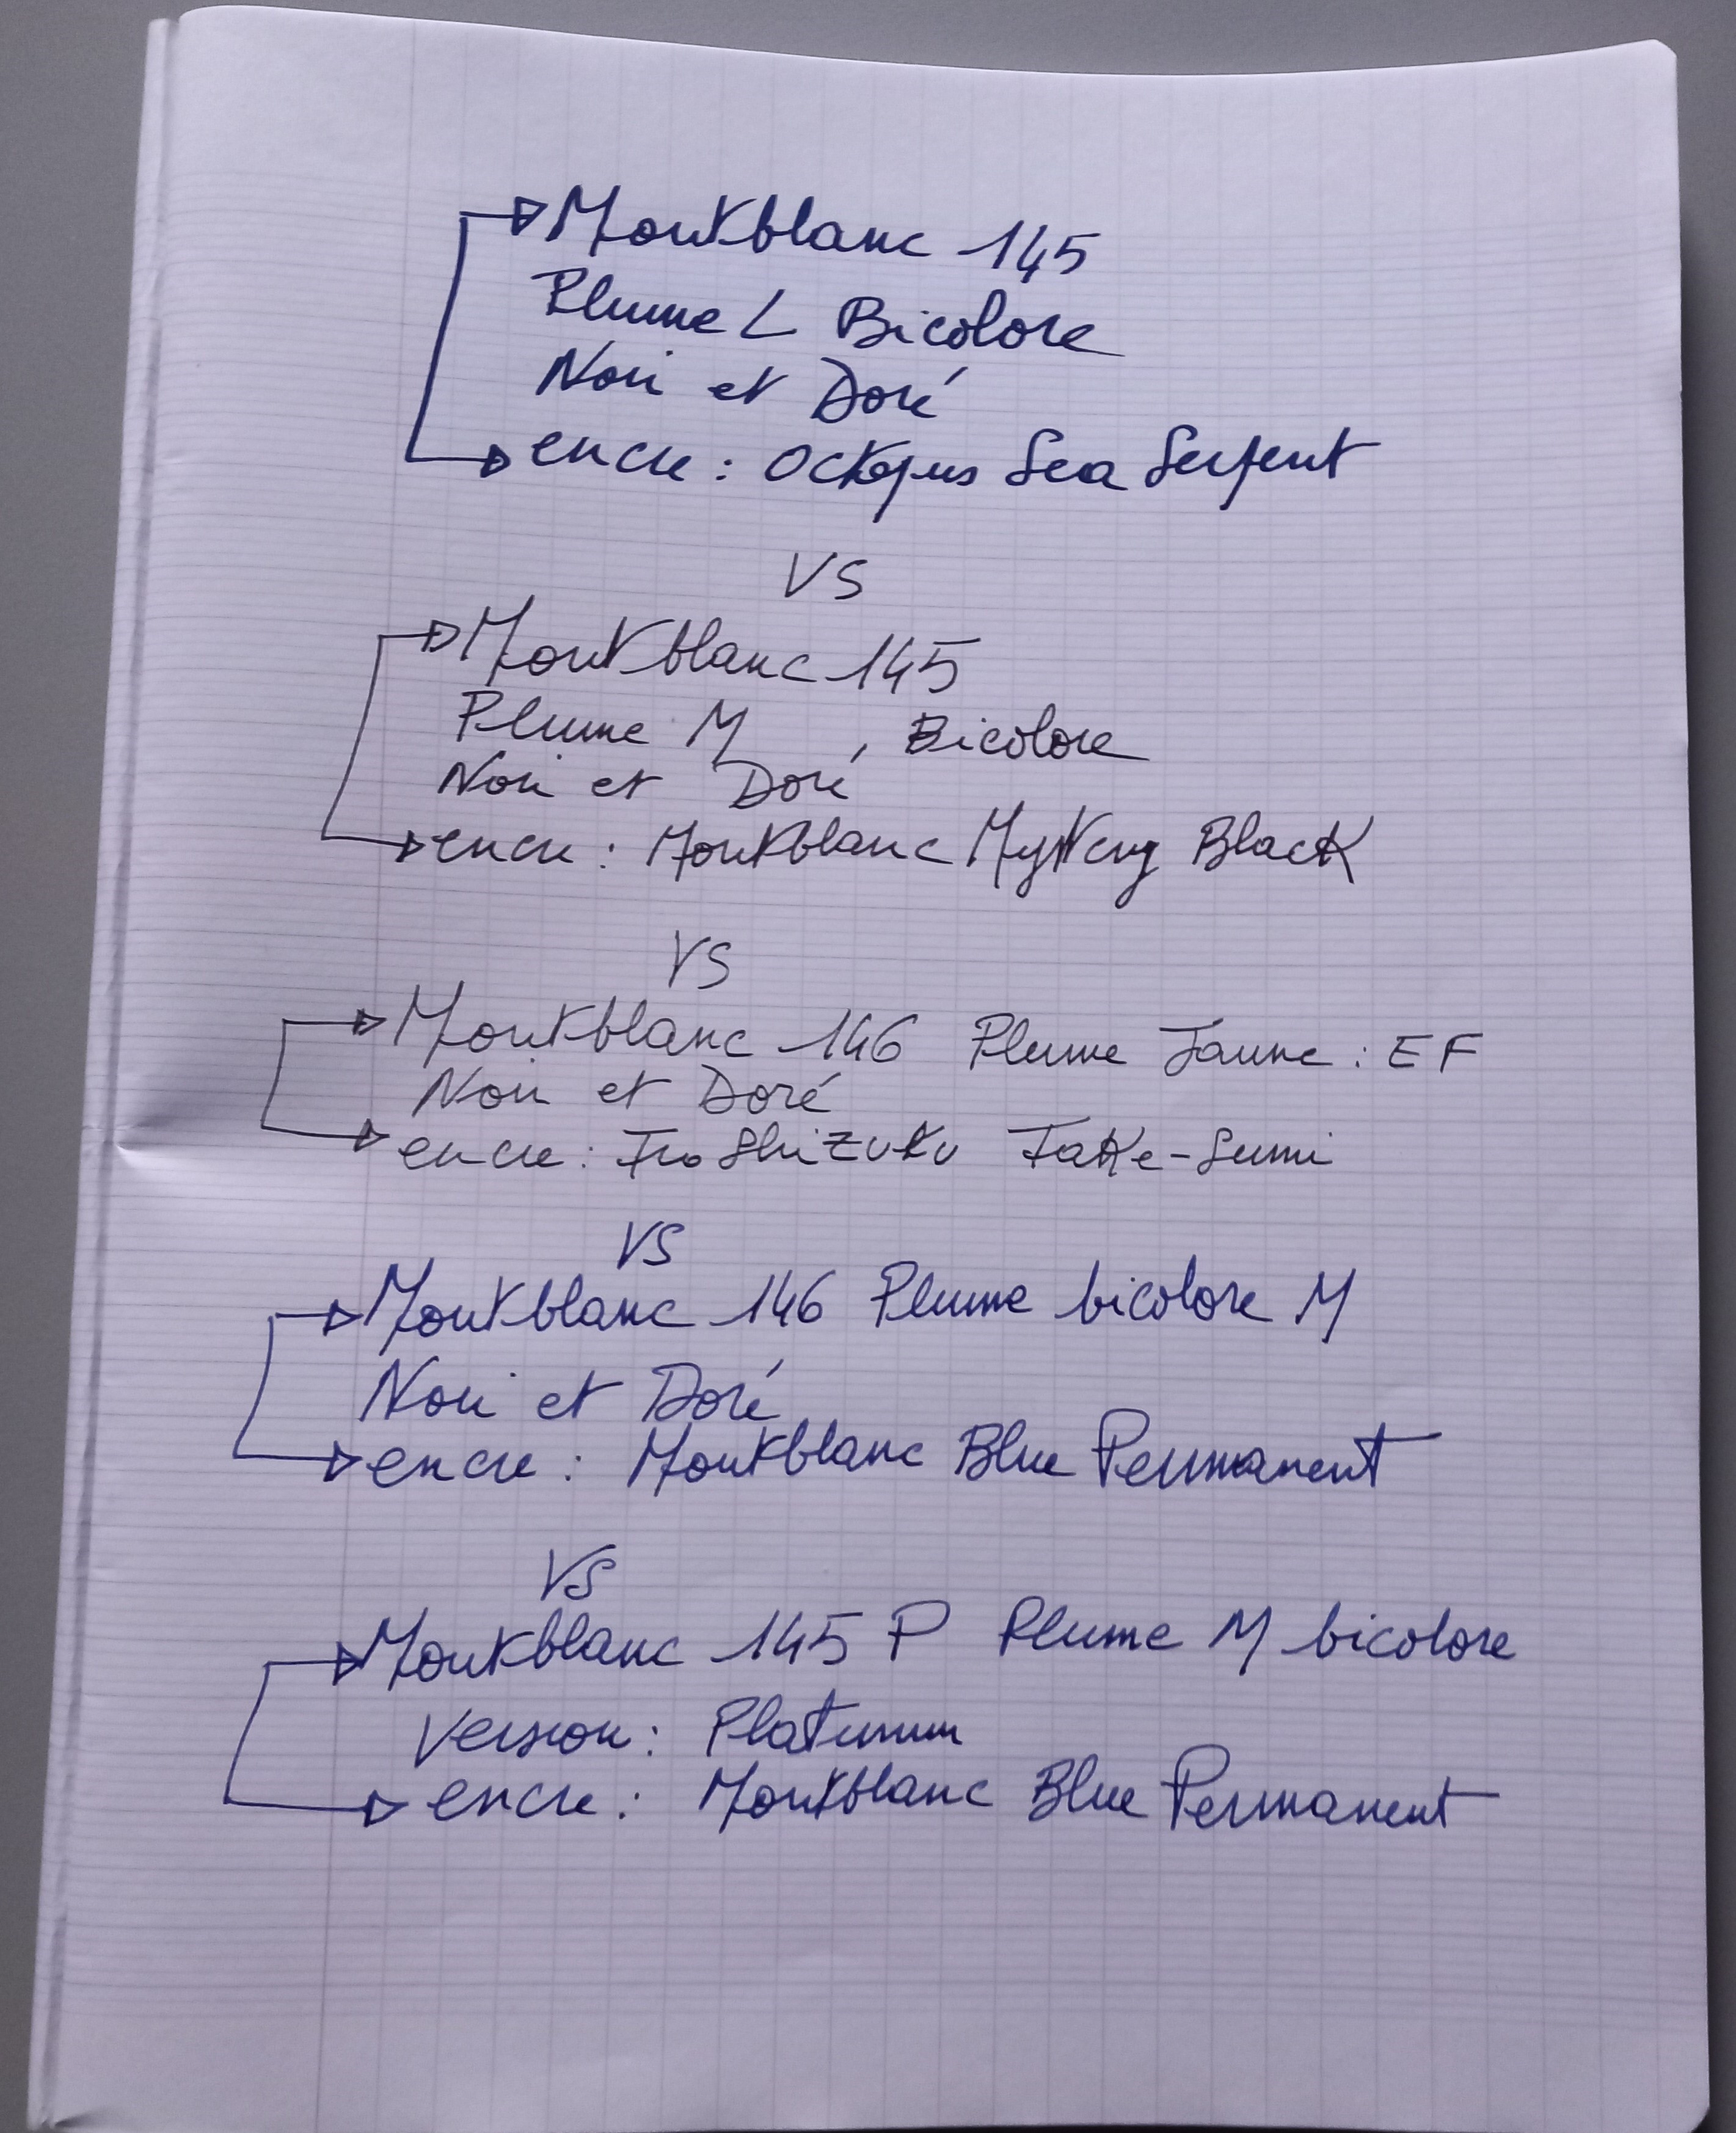 Montblanc 145
Plume L Bicolore
Noir et Doré
encre : Octopus Sea Serpent
VS
Montblanc 145
Plume M , Bicolore
Noir et Doré
encre : Montblanc Mystery Black
VS
Montblanc 146 Plume Jaune : EF
Noir et Doré
encre : Iroshizuku Take-Sumi
VS
Montblanc 146 Plume bicolore M
Noir et Doré
encre : Montblanc Blue Permanent
VS
Montblanc 145 P Plume M bicolore
Version : Platinum
encre : Montblanc Blue Permanent